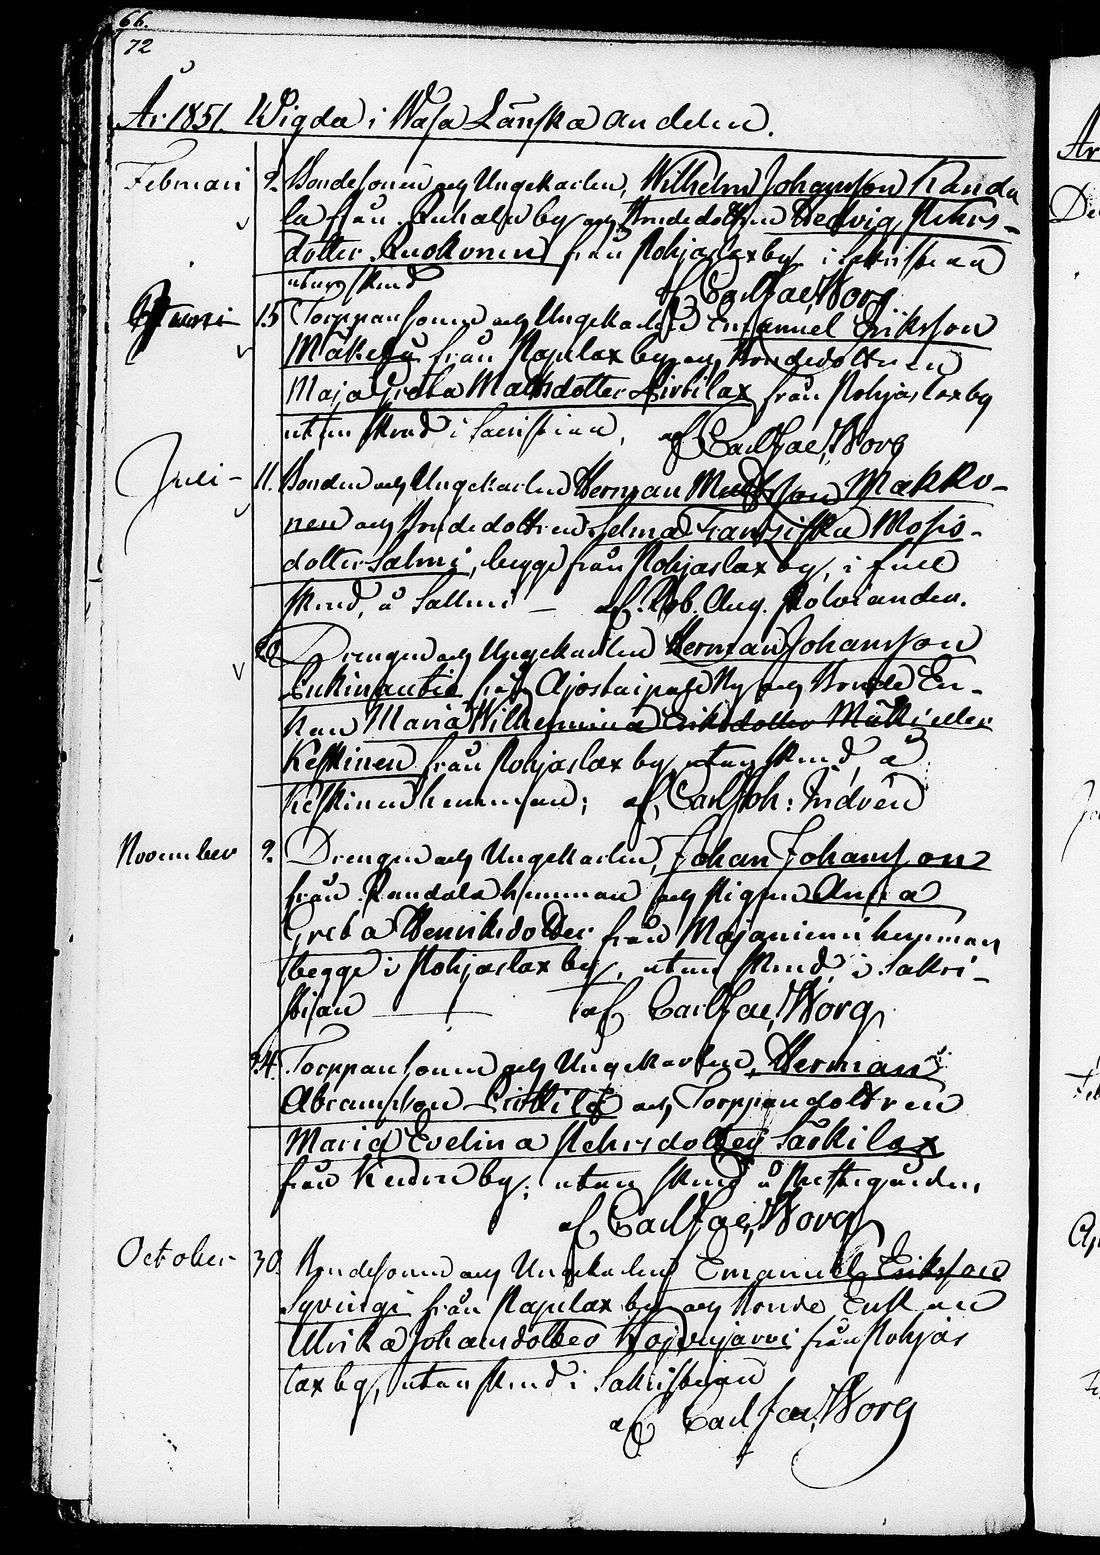 66.
72
År 1851. Wigda i Wasa Länska andelen.
Februari 9. Bondesonen och Ungekarlen, Wilhelm Johansson Randa
la från by och Bondedottren Hedvig Pehrs-
dotter Ruokonen från Pohjaslax by, i sakristian
utan skrud af Carl Jac. Worg
Juni 15 Torpparsonen och Ungekarlen Emanuel Eriksson
Mäkelä från Napulax by och Bondedottren
Maja Greta Mattsdotter från Pohjaslax by
utan skrud i sacristian, af Carl Jac. Worg
Juli - 11. Bonden och Ungekarlen Herman Mattsson Makko-
nen och Bondedottren Selma Fransiska Mosis-
dotter Salmi, begge från Pohjaslax by, i full
skrud, å Salmi - af Rob. Aug. Polviander.
20. Drengen och Ungekarlen Herman Johansson
från by och Bonde En-
kan Maria Wilhelmina Eriksdotter Mäki eller
Keskinen från Pohjaslax by utan skrud, å
Keskinen hemman; af Carl Joh: Indrén
November 9. Drengen och Ungekarlen, Johan Johansson
från Randala hemman och Pigan Anna
Greta Henriksdotter från Majaniemi hemman
begge i Pohjaslax by, utan skrud, i sakri-
stian af Carl Jac. Worg
24. Torpparsonen och Ungekarlen, Herman
Abramsson och Torppardottren
Maria Evelina Pehrsdotter Särkilax
från by; utan skrud å Prestegården,
af Carl Jac. Worg
October 30. Bondesonen och Ungekarlen Emanuel Eriksson
Syvingi från Napulax by och Bonde Enkan
Ulrika Johansdotter Kojvujärvi från Pohjas
lax by, utan skrud i sakristian
af Carl Jac. Worg